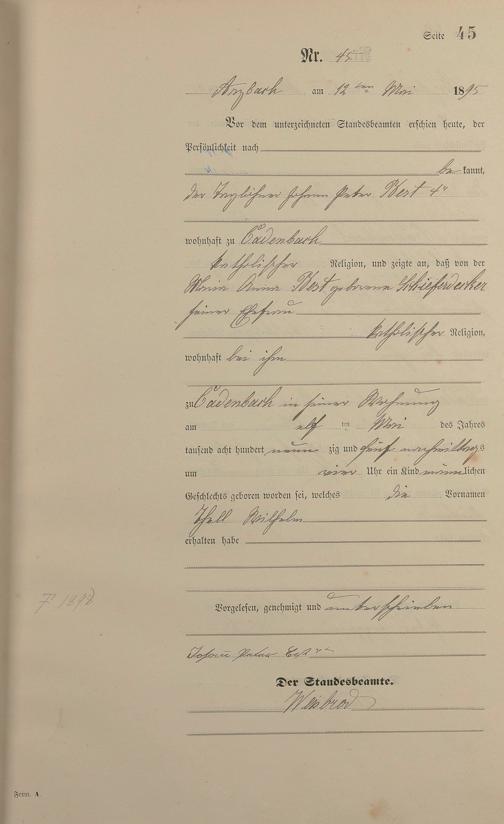 Seite 45
Nr. 45
Arzbach am 12ten Mai 1895
Vor dem unterzeichneten Standesbeamten erschien heute, der
Persönlichkeit nach
be kannt,
der Taglöhner Johann Peter Best 4r
wohnhaft zu Cadenbach
katholischer Religion, und zeigte an, daß von der
Maria Anna Best geborene Schieferdecker
seiner Ehefrau
katholischer Religion,
wohnhaft bei ihm
zu Cadenbach in seiner Wohnung
am elf ten Mai des Jahres
tausend acht hundert neun zig und fünf nachmittags
um vier Uhr ein Kind männlichen
Geschlechts geboren worden sei, welches die Vornamen
Wilhelm
erhalten habe
Vorgelesen, genehmigt und unterschrieben
Johann Peter Best
Der Standesbeamte.
Weisbrod
Form. A.